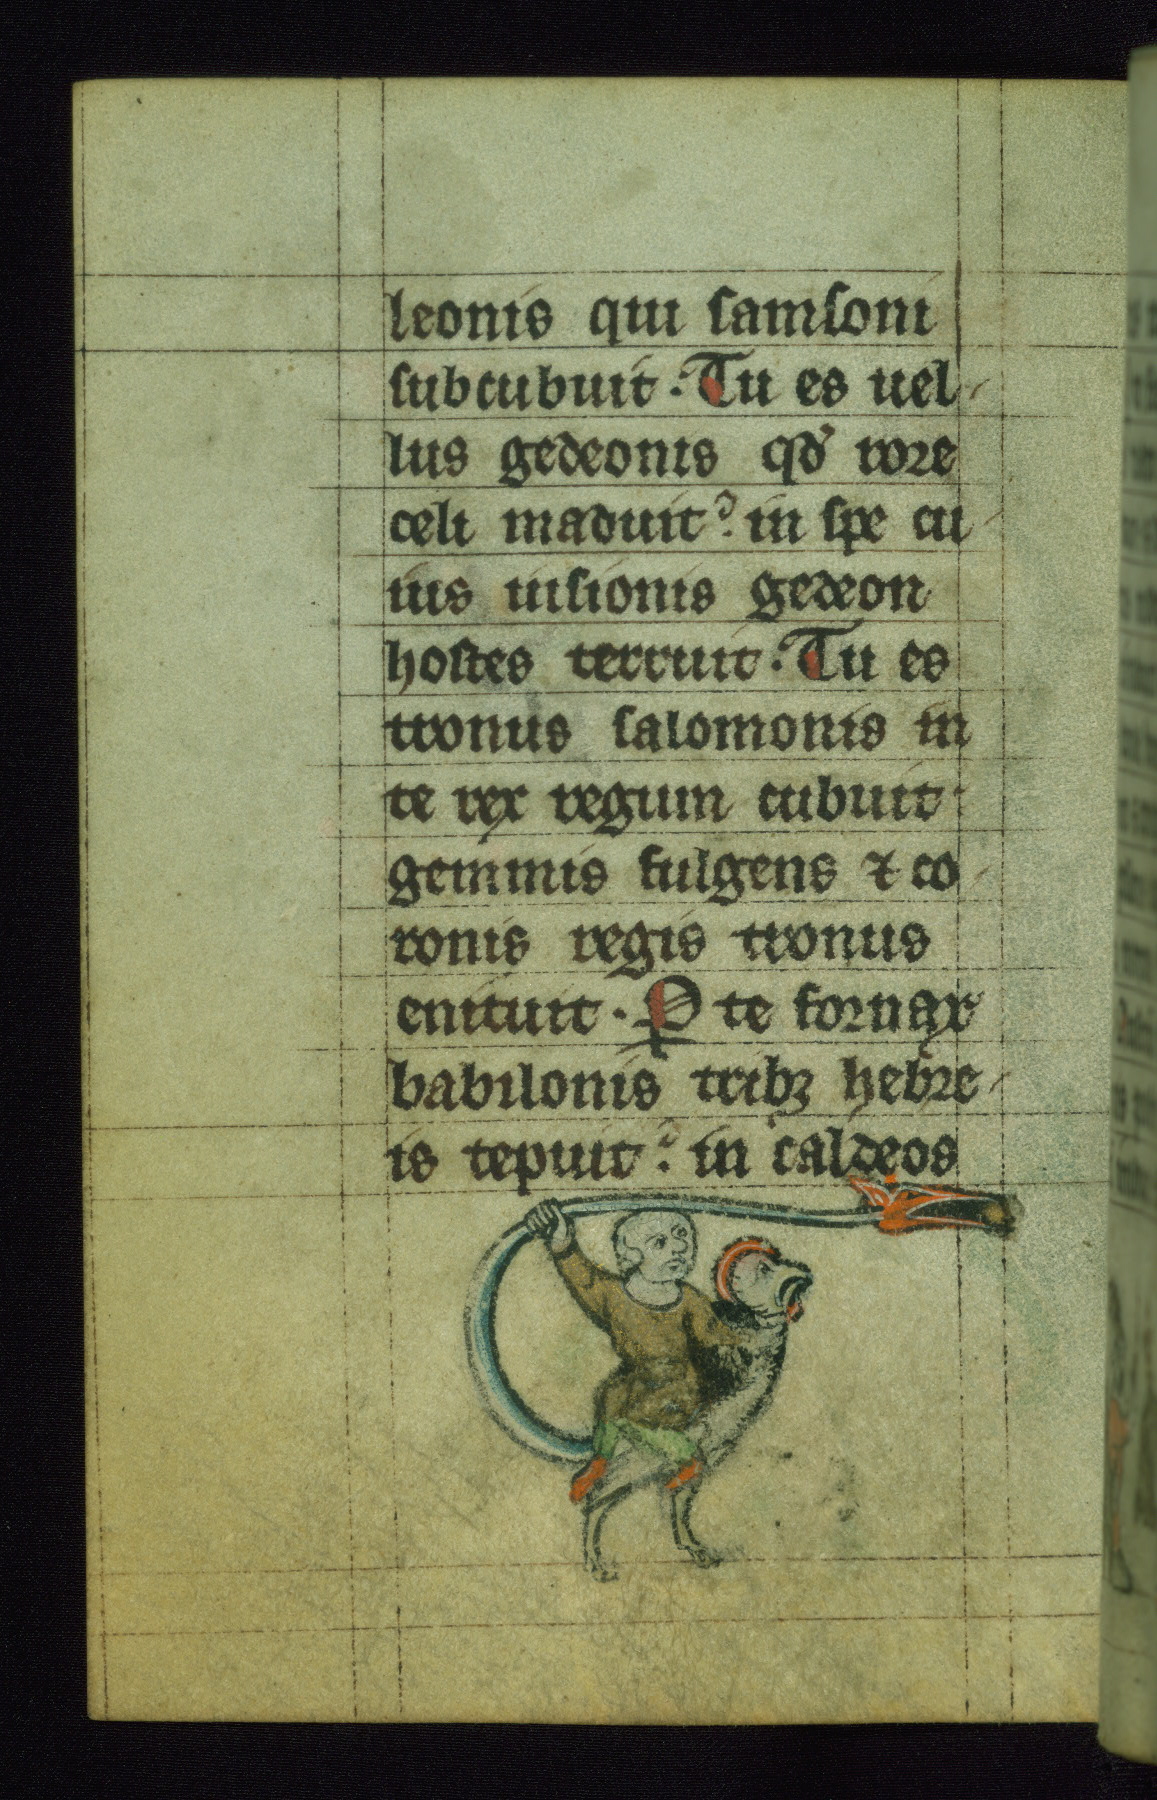 leonis qui samsoni
subcubuit. Tu es uel
lus gedeonis qd' rore
celi maduit: in spe cu
ius uisionis gedeon
hostes terruit. Tu es
tronus salomonis in
te rex regum cubuit
gemmis fulgens ⁊ co
ronis regis tronus
enituit. Ꝑ te fornax
babilonis tribꝫ hebre
is tepuit: in caldeos